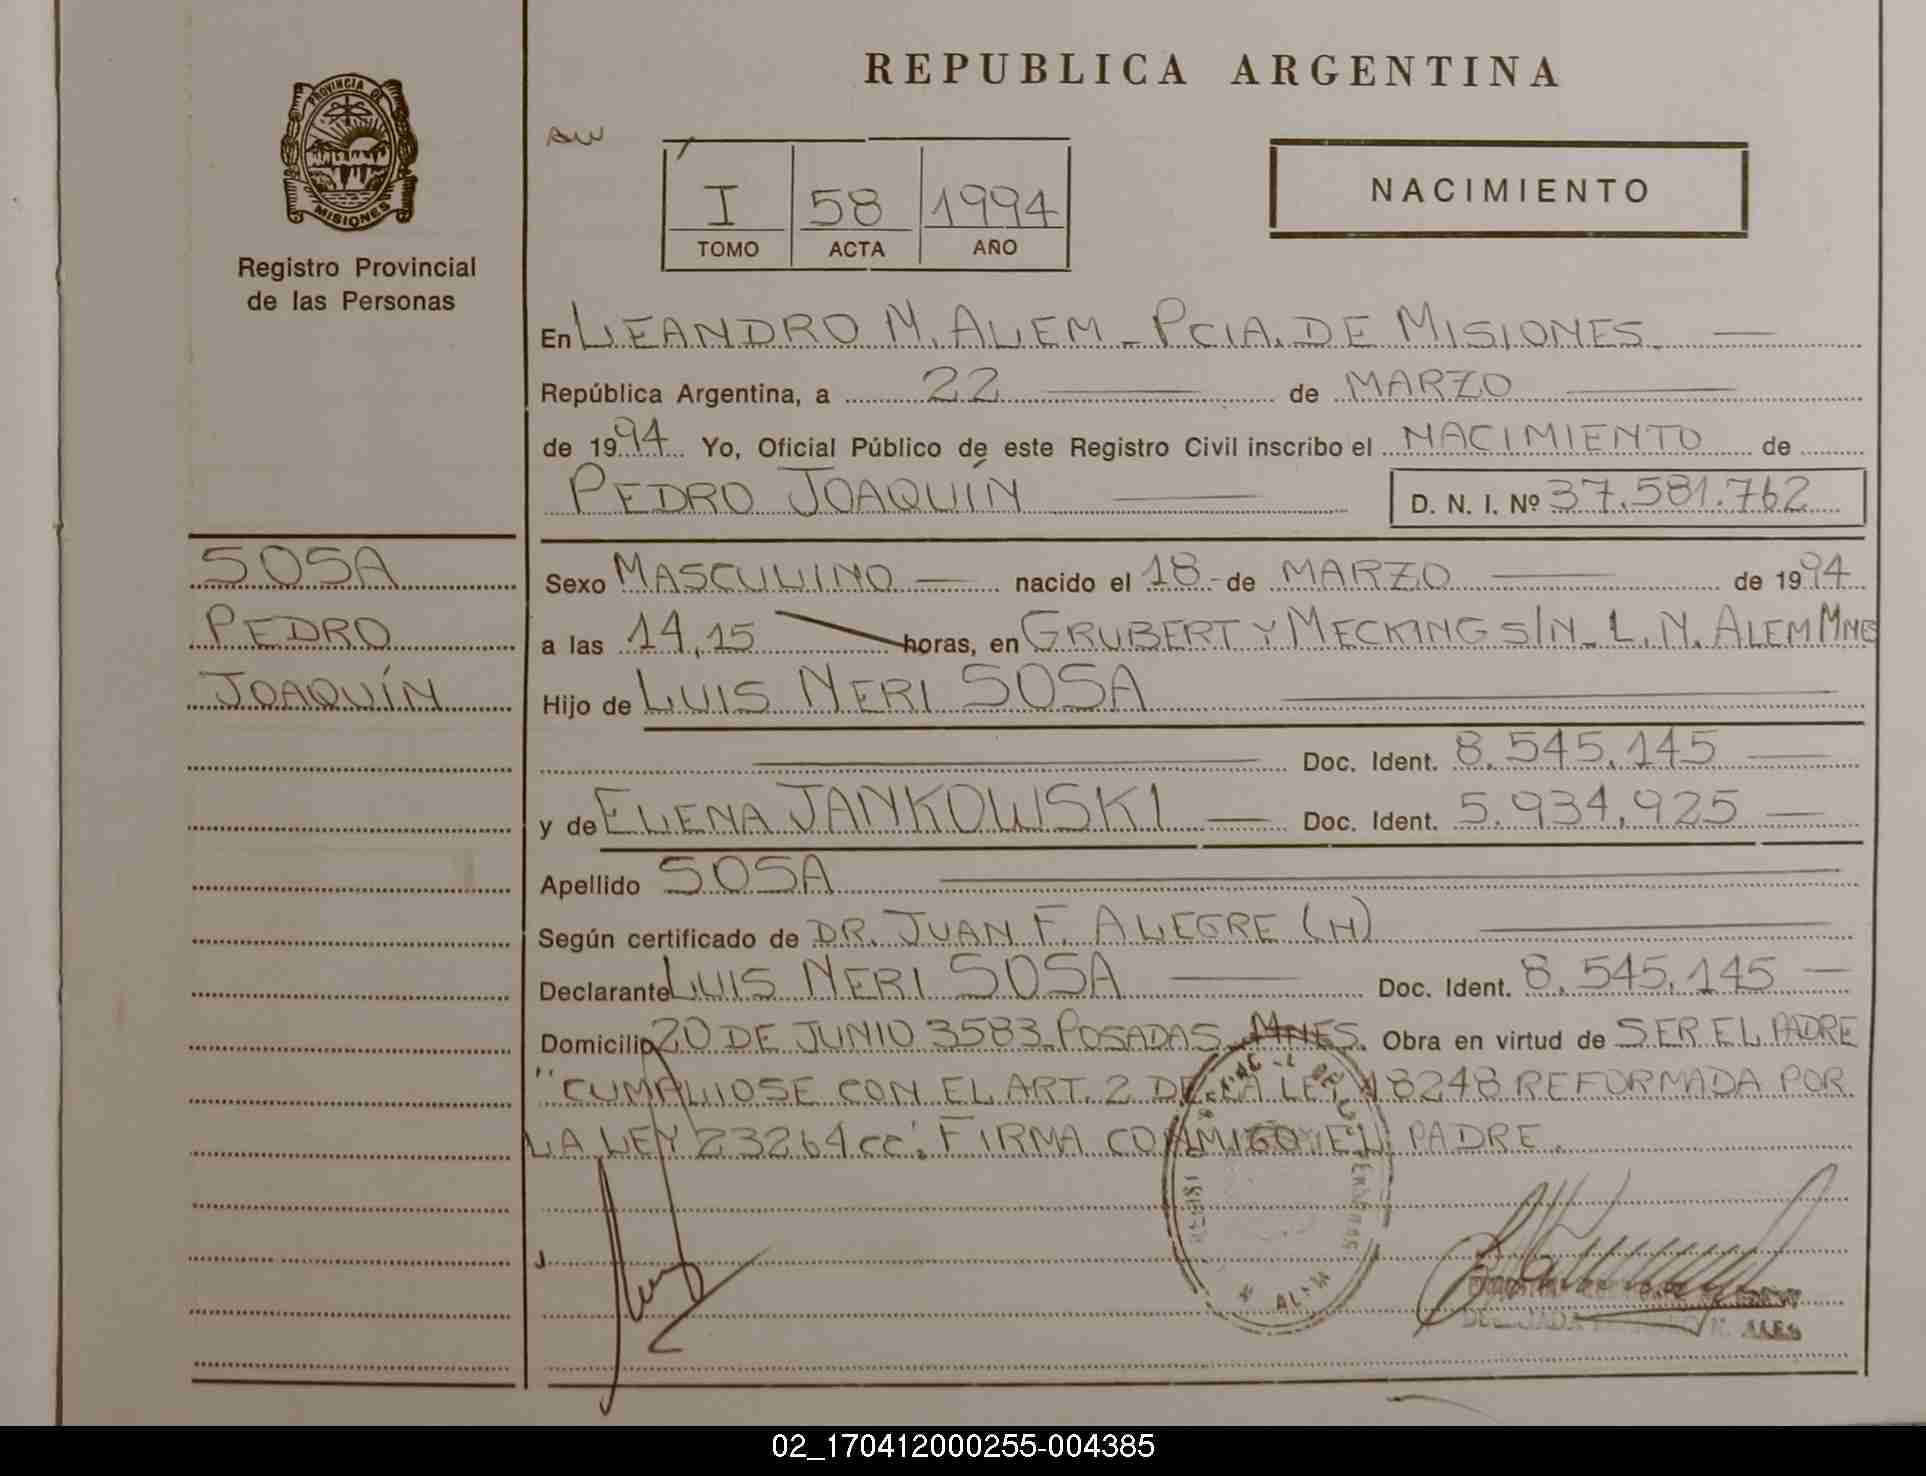 REPUBLICA ARGENTINA
PROVINCIA DE
MISIONES
Registro Provincial
de las Personas
I 58 1994
TOMO ACTA AÑO
NACIMIENTO
En LEANDRO N. ALEM - PCIA. DE MISIONES.
República Argentina, a 22 de MARZO
de 1994 Yo, Oficial Público de este Registro Civil inscribo el NACIMIENTO de
PEDRO JOAQUÍN D. N. I. Nº 37.581.762
SOSA
PEDRO
JOAQUÍN
Sexo MASCULINO nacido el 18 de MARZO de 1994
a las 14,15 horas, en GRUBERT Y MECKING S/N - L. N. ALEM MNES
Hijo de LUIS NERI SOSA
Doc. Ident. 8.545.145
y de ELENA JANKOWSKI Doc. Ident. 5.934.925
Apellido SOSA
Según certificado de DR. JUAN F. ALEGRE (H)
Declarante LUIS NERI SOSA Doc. Ident. 8.545.145
Domicilio 20 DE JUNIO 3583 POSADAS MNES. Obra en virtud de SER EL PADRE
"CUMPLIOSE CON EL ART. 2 DE LA LEY 18248 REFORMADA POR
LA LEY 23264 CC". FIRMA CONMIGO EL PADRE.
02_170412000255-004385